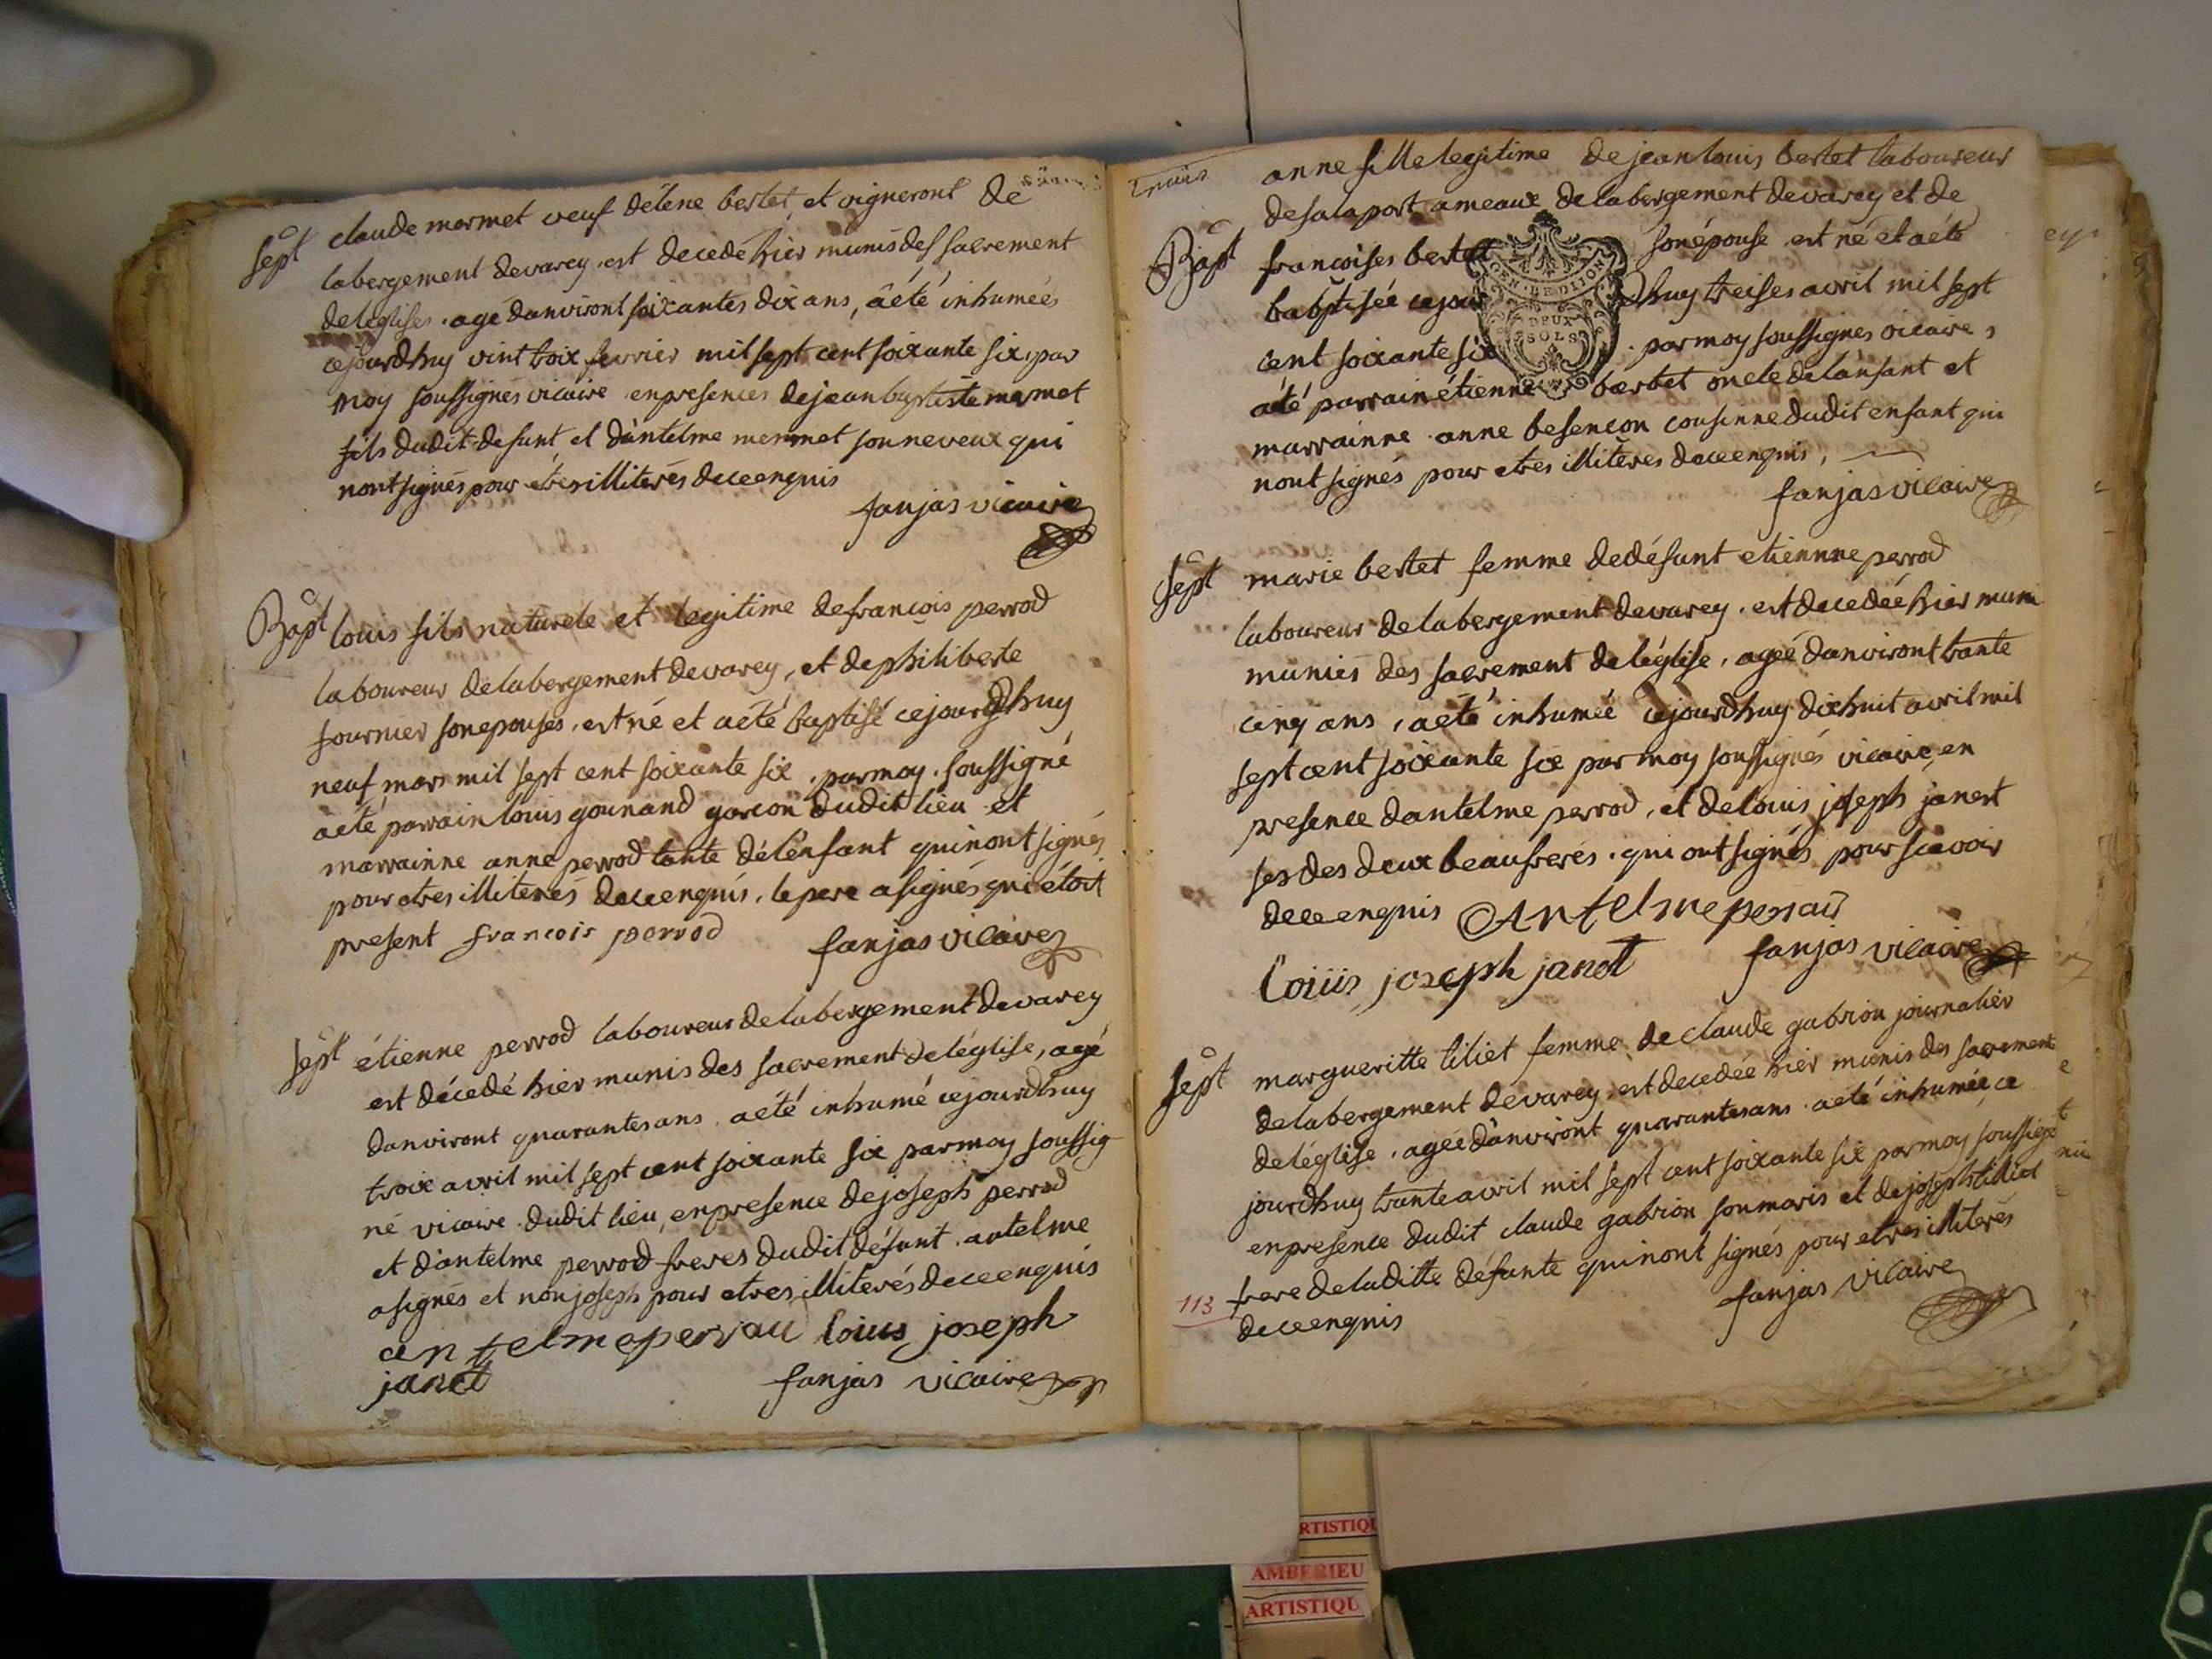 sept claude mermet veuf délene bertet et vigneront de
labergement devarey est decedé hier munis des sacrement
deleglises agé danviront soixantes dix ans, aété inhumées
cejourdhuy vint troix fevrier mil sept cent soixante six par
moy soussignés vicaire enpresences dejeanbaptiste mermet
fils dudit defunt et dántelme mermet sonneveux qui
nontsignés pour etres illiterés deceenquis
fanjas vicaire
Bapt louis fils naturele et legitime defrancois perrod
laboureur delabergement devarey, et dephiliberte
fournier sonepouses est né et aété baptisé cejourdhuy
neuf mars mil sept cent soixante six parmoy soussigné
aété parrain louis gounand garcon dudit lieu et
marrainne anne perrod tante délénfant quinont signés
pour etres illiterés deceenquis. le pere asignés qui étoit
present francois perrod fanjas vicaire
sept étienne perrod laboureur delabergement devarey
est décedé hier munis des sacrement deléglise, agé
danviront quarantes ans aété inhumé cejourdhuy
troix avril mil sept cent soixante six parmoy soussig
né vicaire dudit lieu, enpresence dejoseph perrod
et dántelme perrod freres dudit défunt antelme
asignés et nonjoseph pour etres illiterés deceenquis
antelme perrau loius joseph
janet fanjas vicaire
anne fille legitime de jean louis bertet laboureur
desalaport ameaux delabergement devarey et de
Bapt francoises bertet sonépouse est né et aété
baptisée cejourdhuy treises avril mil sept
DEUX
SOLS
cent soixante six parmoy soussignes vicaire,
aété parrain étienne bertet oncle delánfant et
marrainne anne besencon cousinne dudit enfant qui
nont signés pour etres illiteres deceenquis,
fanjas vicaire
sept marie bertet femme dedéfunt etiennne perrod
laboureur delabergement devarey est decedée hier muni
munies des sacrement deléglise, ageé danviront trante
cinq ans, aété inhumée cejourdhuy dixhuit avril mil
sept cent soixante six par moy soussignés vicaire en
presence dantelme perrod, et delouis joseph janest
ses des deux beaufrerés qui ont signés pour scavoir
deceenquis Antelme perrau
loiüs joseph janet fanjas vicaire
sept margueritte tiliet femme de claude gabrion journalier
delabergement dévarey est decedée hier munis des sacrement
deléglise, ageé dánviront quarantes ans aété inhumée ce
jourdhuy trante avril mil sept cent soixante six par moy soussigé
enpresence dudit claude gabrion sonmaris et dejoseph tilliet
frere deladitte défunte quinont signés pour etres illiterés
113
deceenquis fanjas vicaire
RTISTIQU
AMBERIEU
ARTISTIQU